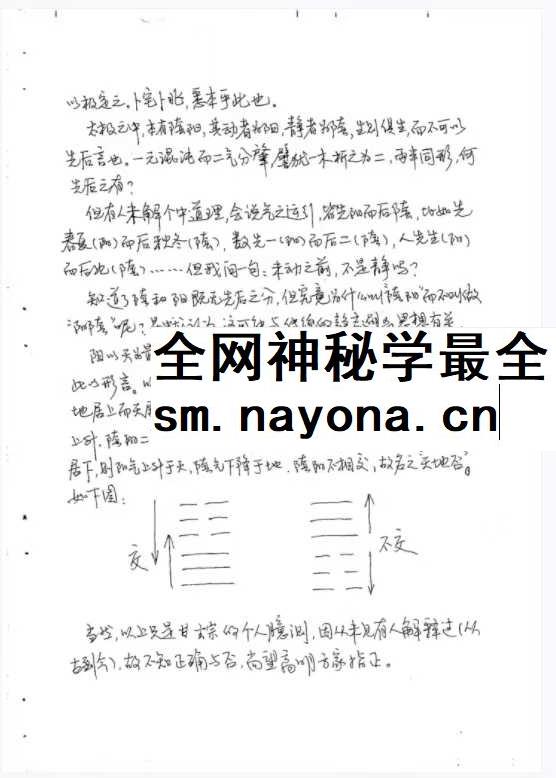 以极定之。卜宅卜兆，悉本乎此也。
太极之中，本有阴阳，其动者为阳，静者为阴，生则俱生，而不可以
先后言也。一元混沌而二气分肇，譬犹一木析之为二，两半同形，何
先后之有？
但有人未解个中道理，会说气之运行，皆先阳而后阴，比如先
春夏(阳)而后秋冬(阴)，数先一(阳)而后二(阴)，人先生(阳)
而后死(阴)……但我问一句：未动之前，不是静吗？
知道了阴和阳既无先后之分，但究竟为什么叫"阴阳"而不叫做
"阳阴"呢？
阳以天
全网神秘学最全
此以形言。
sm.nayona.cn
地居上而天
上升，阴阳二
居下，则阳气上升于天，阴气下降于地，阴阳不相交，故名之"天地否"。
如下图：
交
不交
当然，以上只是甘玄宗的个人臆测，因从未见有人解释过(从
古到今)，故不知正确与否，尚望高明方家指正。